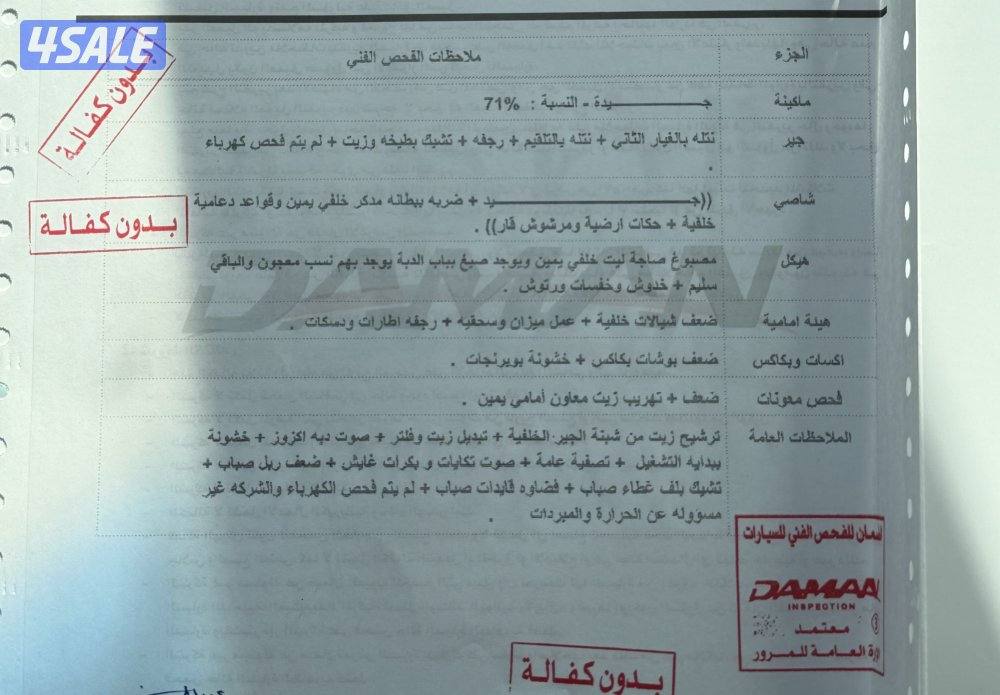 4SALE
بدون كفالة
الجزء
ملاحظات الفحص الفني
ماكينة
جيدة - النسبة : 71%
جير
نتله بالغيار الثاني + نتله بالتلقيم + رجفه + تشيك بطيخه وزيت + لم يتم فحص كهرباء
.
شاصي
((جيد + ضربه ببطانه مدكر خلفي يمين وقواعد دعامية
خلفية + حكات ارضية ومرشوش قار)) .
بدون كفالة
هيكل
مصبوغ صاجة ليت خلفي يمين ويوجد صبغ بباب الدبة يوجد بهم نسب معجون والباقي
سليم + خدوش وخفسات ورتوش .
DAMAN
هيئة امامية
ضعف شيالات خلفية + عمل ميزان وسحقيه + رجفه اطارات ودسكات .
اكسات وبكاكس
ضعف بوشات بكاكس + خشونة بويرنجات .
فحص معونات
ضعف + تهريب زيت معاون أمامي يمين .
الملاحظات العامة
ترشيح زيت من شبنة الجير الخلفية + تبديل زيت وفلتر + صوت دبه اكزوز + خشونة
ببدايه التشغيل + تصفية عامة + صوت تكايات و بكرات غايش + ضعف ربل صباب +
تشيك بلف غطاء صباب + فضاوه قايدات صباب + لم يتم فحص الكهرباء والشركه غير
مسؤوله عن الحرارة والمبردات .
ضمان للفحص الفني للسيارات
DAMAN
INSPECTION
معتمد
العامة للمرور
بدون كفالة